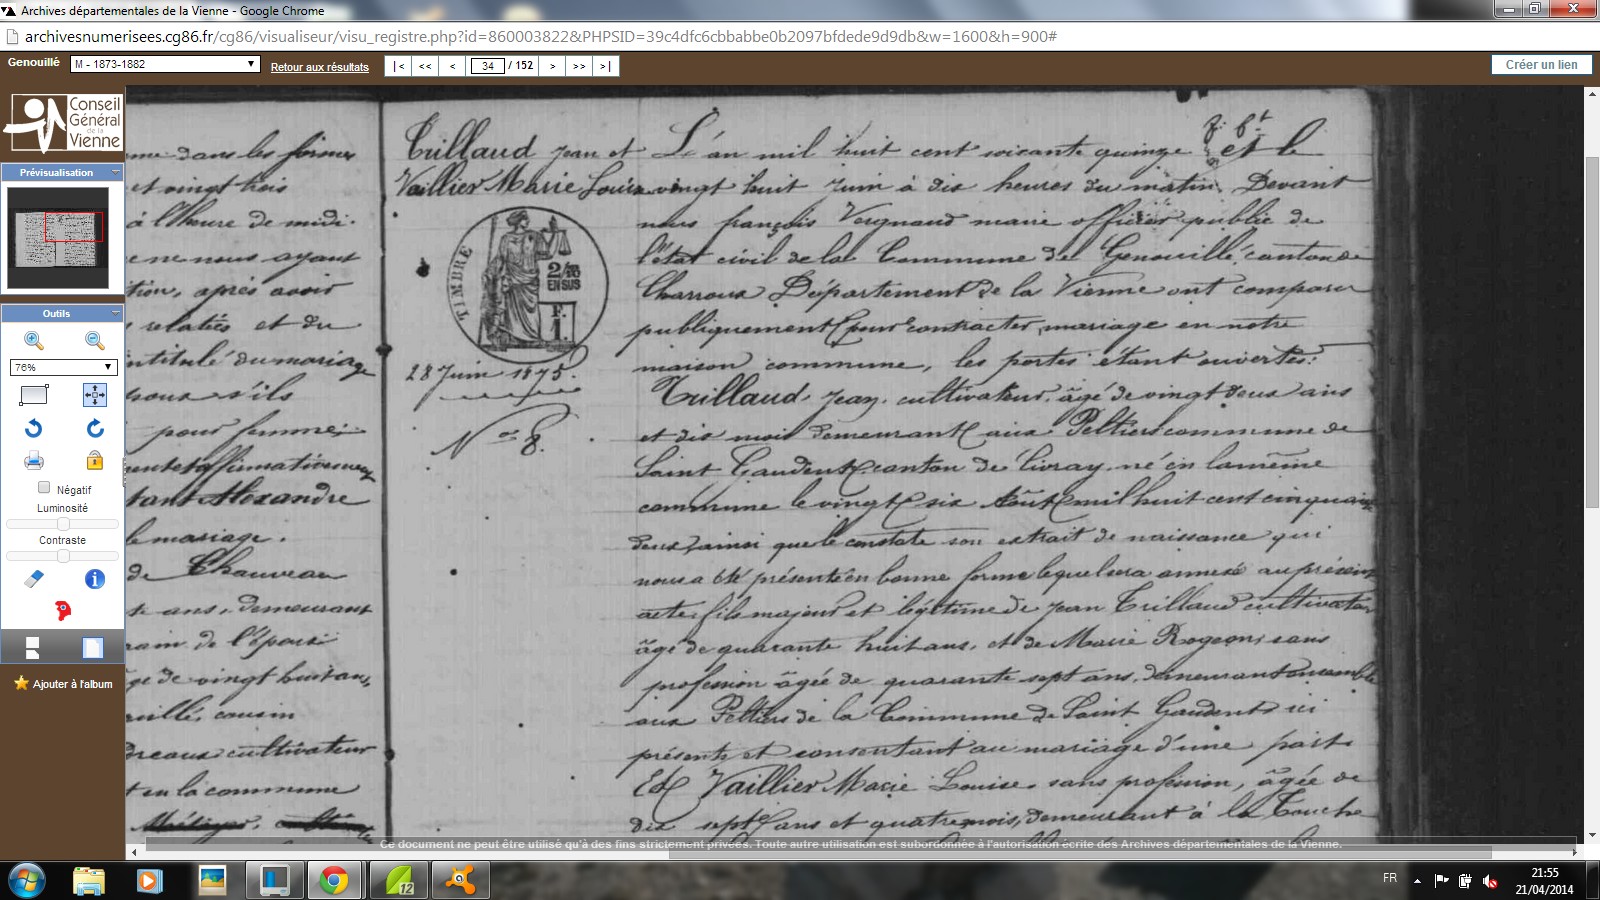 Archives départementales de la Vienne - Google Chrome
archivesnumerisees.cg86.fr/cg86/visualiseur/visu_registre.php?id=860003822&PHPSID=39c4dfc6cbbabbe0b2097bfdede9d9db&w=1600&h=900#
Genouillé M - 1873-1882 Retour aux résultats |< << < 34 / 152 > >> >| Créer un lien
Conseil
Général
de la
Vienne
Prévisualisation
Outils
76%
Négatif
Luminosité
Contraste
Ajouter à l'album
dans les formes
et vingt trois
à l'heure de midi
ne nous ayant
après avoir
relatés et du
intitulé du mariage
s'ils
pour femme
affirmativement
Alexandre
le mariage.
de Chauveau
ans, demeurant
de l'épouse
de vingt huit ans,
cousin
cultivateur
en la commune
Trillaud Jean et
Vaillier Marie Louise
TIMBRE
2/10
EN SUS
F.
1.
28 Juin 1875.
N° 8.
L'an mil huit cent soixante quinze et le
vingt huit Juin à dix heures du matin Devant
nous françois Vergnaud maire officier public de
l'état civil de la Commune de Genouillé, canton de
Charroux Département de la Vienne ont comparu
publiquement pour contracter mariage en notre
maison commune, les portes étant ouvertes:
Trillaud Jean, cultivateur, âgé de vingt deux ans
et dix mois demeurant aux Peltiers commune de
Saint Gaudent canton de Civray né en la même
commune le vingt six Août mil huit cent cinquante
deux, ainsi que le constate son extrait de naissance qui
nous a été présenté en bonne forme lequel sera annexé au présent
acte, fils majeur et légitime de Jean Trillaud cultivateur
âgé de quarante huit ans, et de Marie Rogeon, sans
profession âgée de quarante sept ans, demeurant ensemble
aux Peltiers de la Commune de Saint Gaudent ici
présents et consentant au mariage d'une part
Et Vaillier Marie Louise, sans profession, âgée de
dix sept ans et quatre mois, demeurant à la Touche
Ce document ne peut être utilisé qu'à des fins strictement privées. Toute autre utilisation est subordonnée à l'autorisation écrite des Archives départementales de la Vienne.
12
FR
21:55
21/04/2014